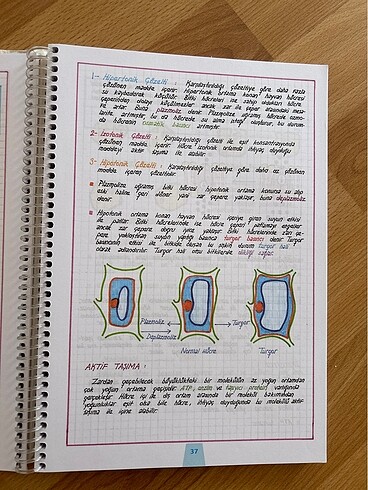 1- Hipertonik Çözelti : Karşılaştırıldığı çözeltiye göre daha fazla
çözünen madde içerir. Hipertonik ortama konan hayvan hücresi
su kaybederek küçülür. Bitki hücreleri ise sahip oldukları hücre
çeperinden dolayı küçülmezler ancak zar ile çeper arasındaki mesa-
fe artar. Buna plazmoliz denir. Plazmolize uğramış hücrede osmo-
larite artmıştır, bu da hücrede su alma isteği oluşturur, bu durum-
da hücrenin osmotik basıncı artmıştır.
2- İzotonik Çözelti : Karşılaştırıldığı çözelti ile eşit konsantrasyonda
çözünen madde içerir. Hücre izotonik ortamda ihtiyaç duyduğu
maddeyi aktif taşıma ile alabilir.
3- Hipotonik Çözelti : Karşılaştırıldığı çözeltiye göre daha az çözünen
madde içeren çözeltidir.
Plazmolize uğramış bitki hücresi hipotonik ortama konursa su alıp
eski haline geri döner yani zar çepere yaklaşır, buna deplazmoliz
denir.
Hipotonik ortama konan hayvan hücresi içeriye giren suyun etkisi
ile patlar. Bitki hücrelerinde ise hücre çeperi patlamayı engeller
ancak zar çepere doğru iyice yaklaşır. Bitki hücrelerinde zarı çe-
pere yaklaştıran suyun yaptığı basınca turgor basıncı denir. Turgor
basıncının etkisi ile bitkide oluşan bu şişkin durum turgor hali
olarak adlandırılır. Turgor hali otsu bitkilerde dikliği sağlar.
Plazmoliz
Turgor
Deplazmoliz
Normal Hücre
Turgor
AKTİF TAŞIMA :
Zardan geçebilecek büyüklükteki bir molekülün az yoğun ortamdan
çok yoğun ortama geçişidir. ATP, enzim ve taşıyıcı protein varlığında
gerçekleşir. Hücre içi ile dış ortam arasında bir molekül bakımından
yoğunluklar eşit olsa bile hücre, ihtiyaç duyduğunda bu molekülü aktif
taşıma ile içine alabilir.
37